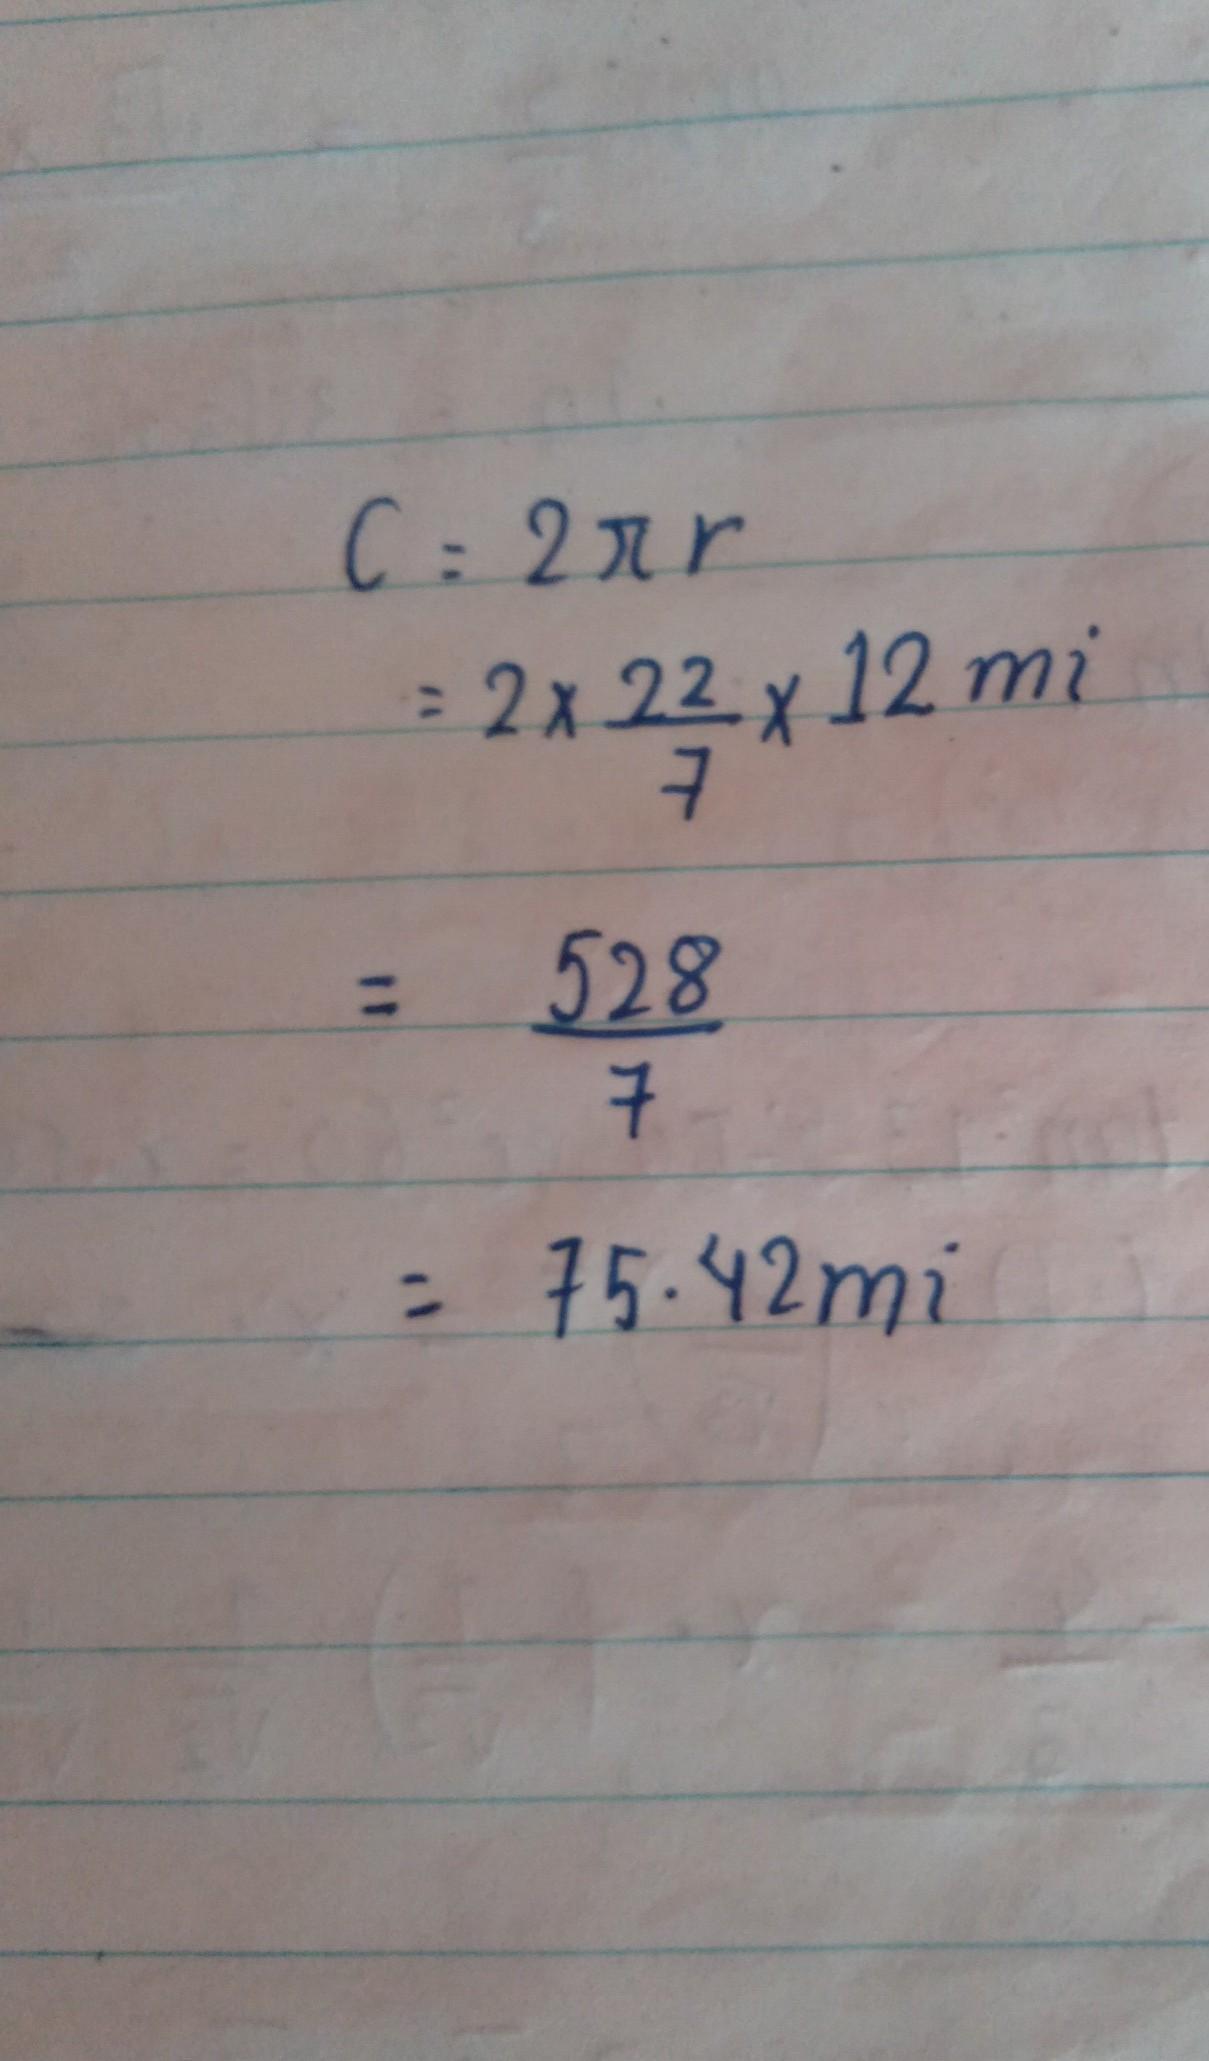 C = 2πr
= 2 × 22/7 × 12 mi
= 528/7
= 75.42mi